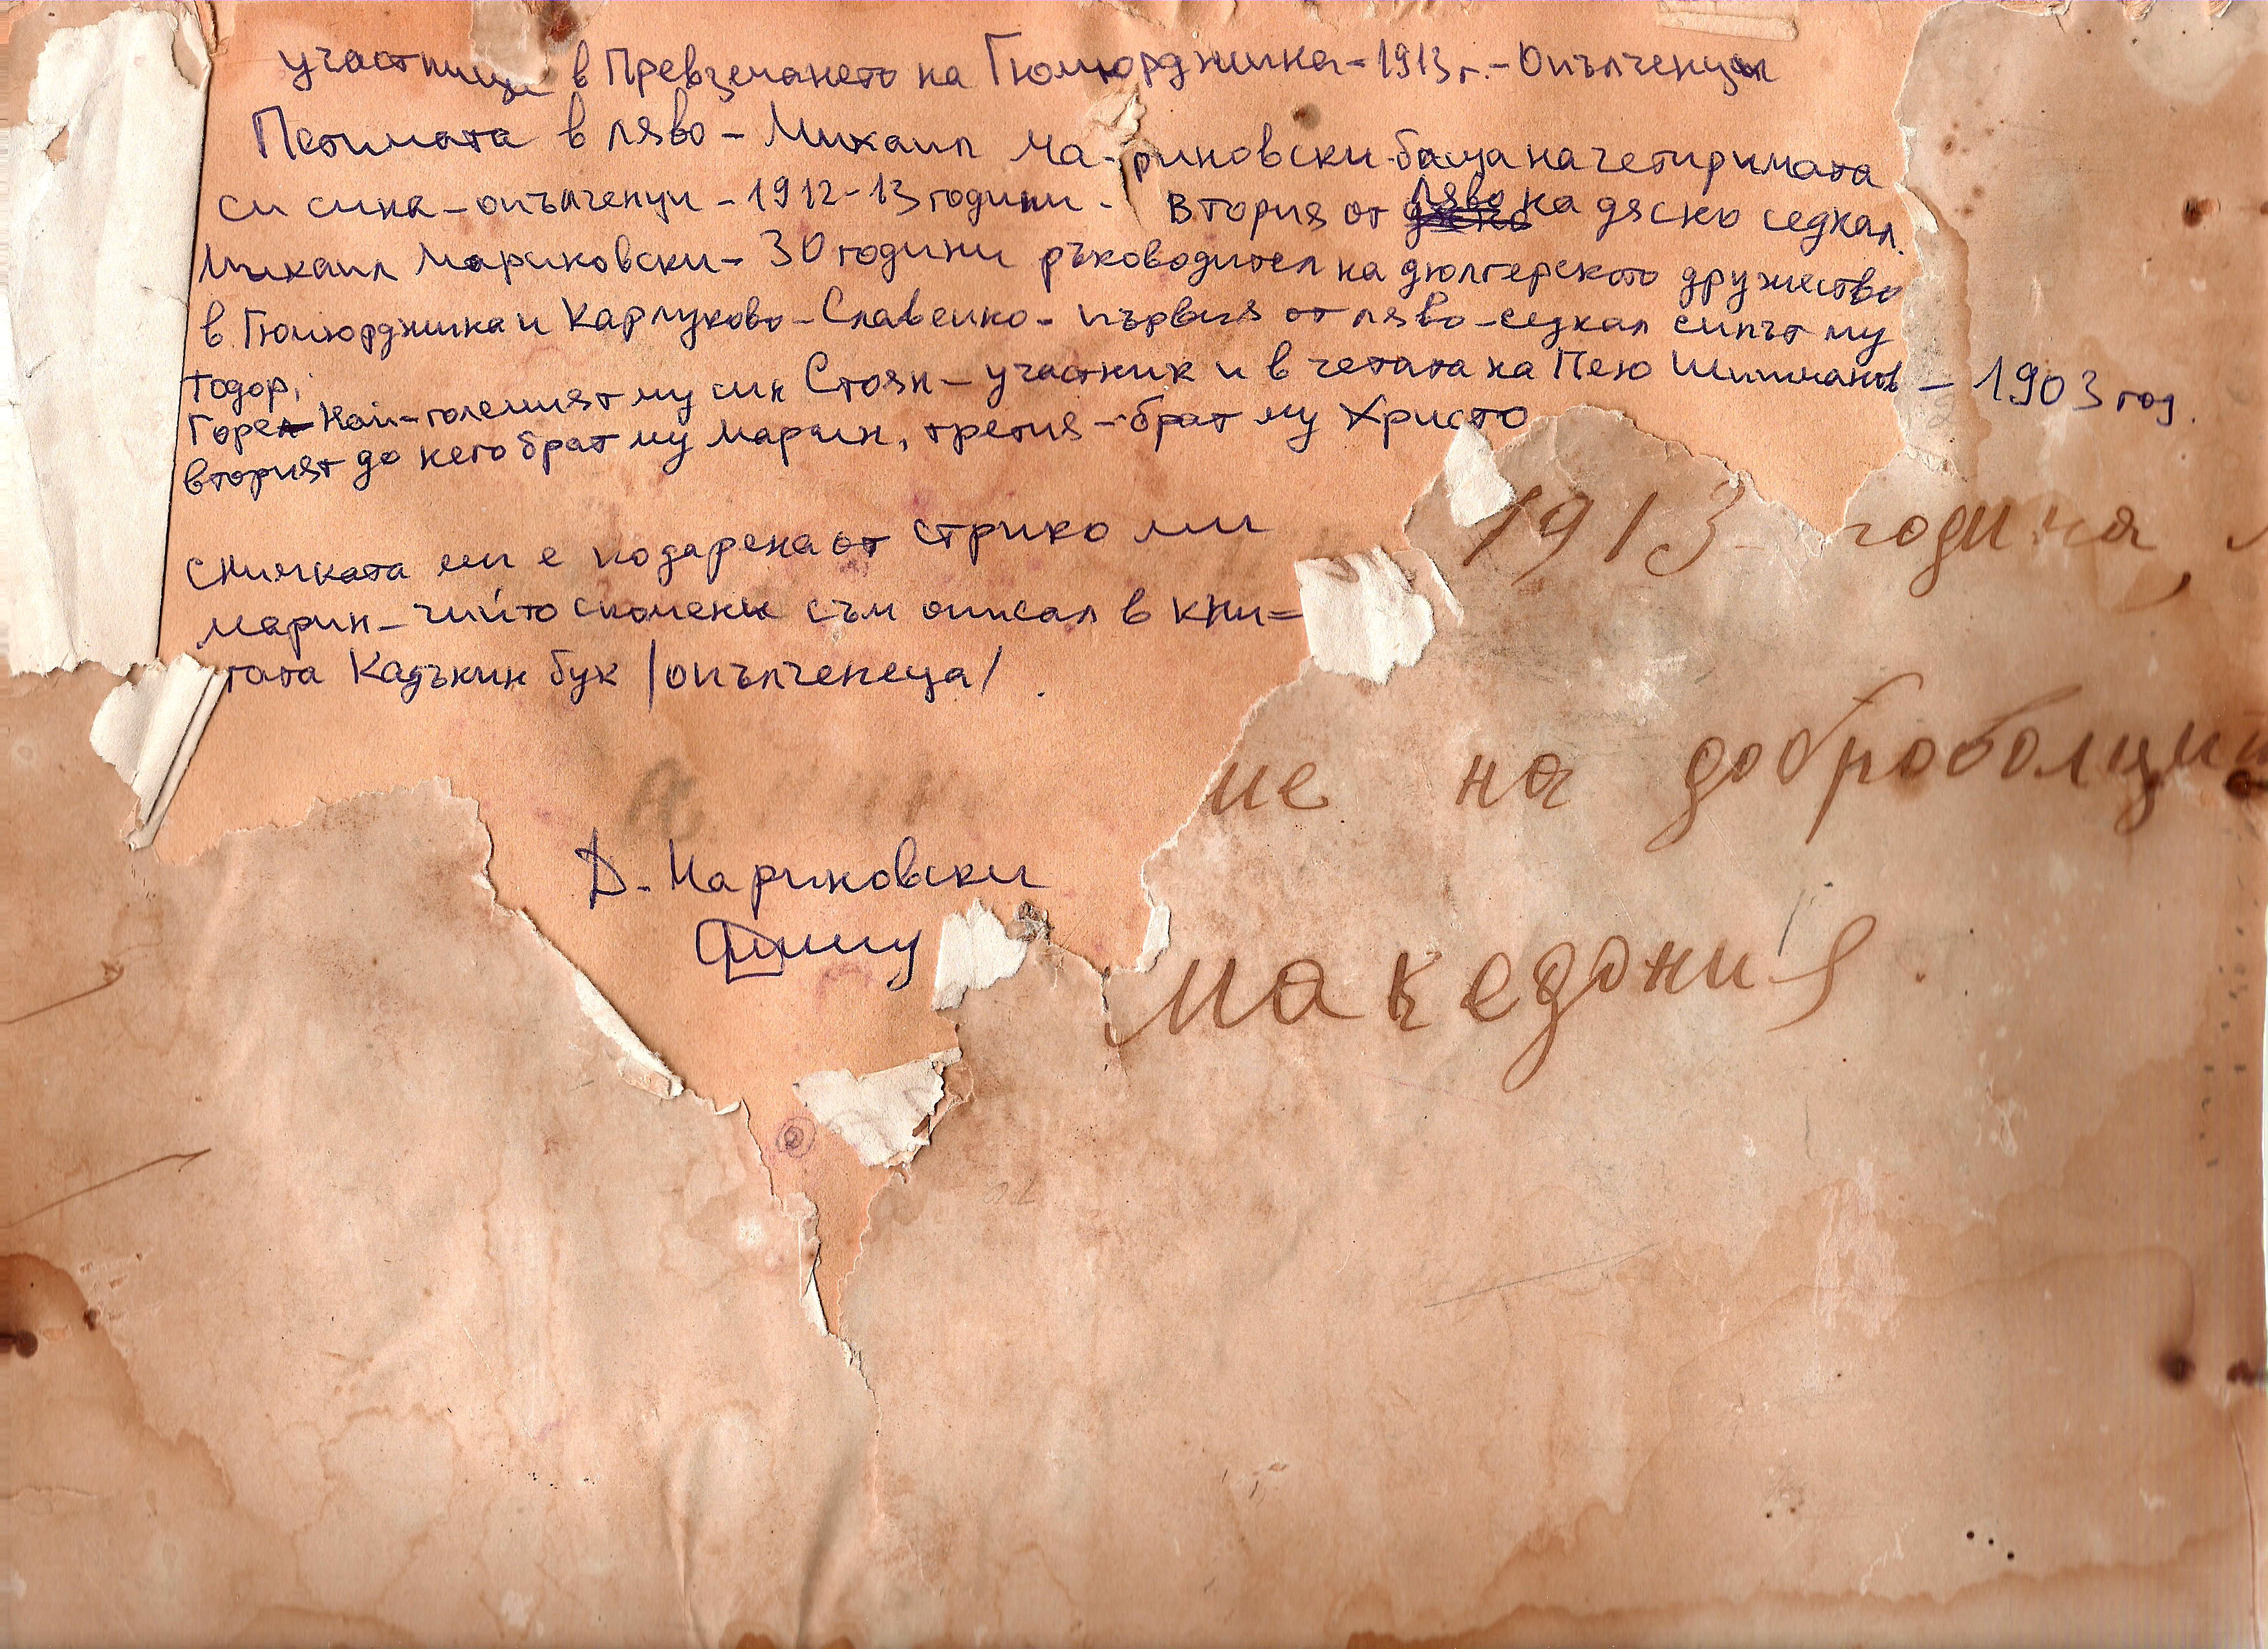 участници в Превземането на Гюмюрджина-1913 г.-Опълченци
Петимата в ляво - Михаил Ма-риновски-баща на четиримата
си сина-опълченци-1912-13 години. Втория от ляво на дясно седнал.
Михаил Мариновски-30 години ръководител на дюлгерското дружество
в Гюмюрджина и Карлуково-Славеино-първия от ляво-седнал синът му
Тодор,
Горе Най-големият му син Стоян-участник и в четата на Пею Шишманов - 1903 год.
вторият до него брат му Марин, третия-брат му Христо
Снимката ми е подарена от стрико ми
Марин-чийто спомени съм описал в кни=
гата Кадъкин бук /опълченеца/.
Д. Мариновски
1913 година,
ие на доброволци
Македония.